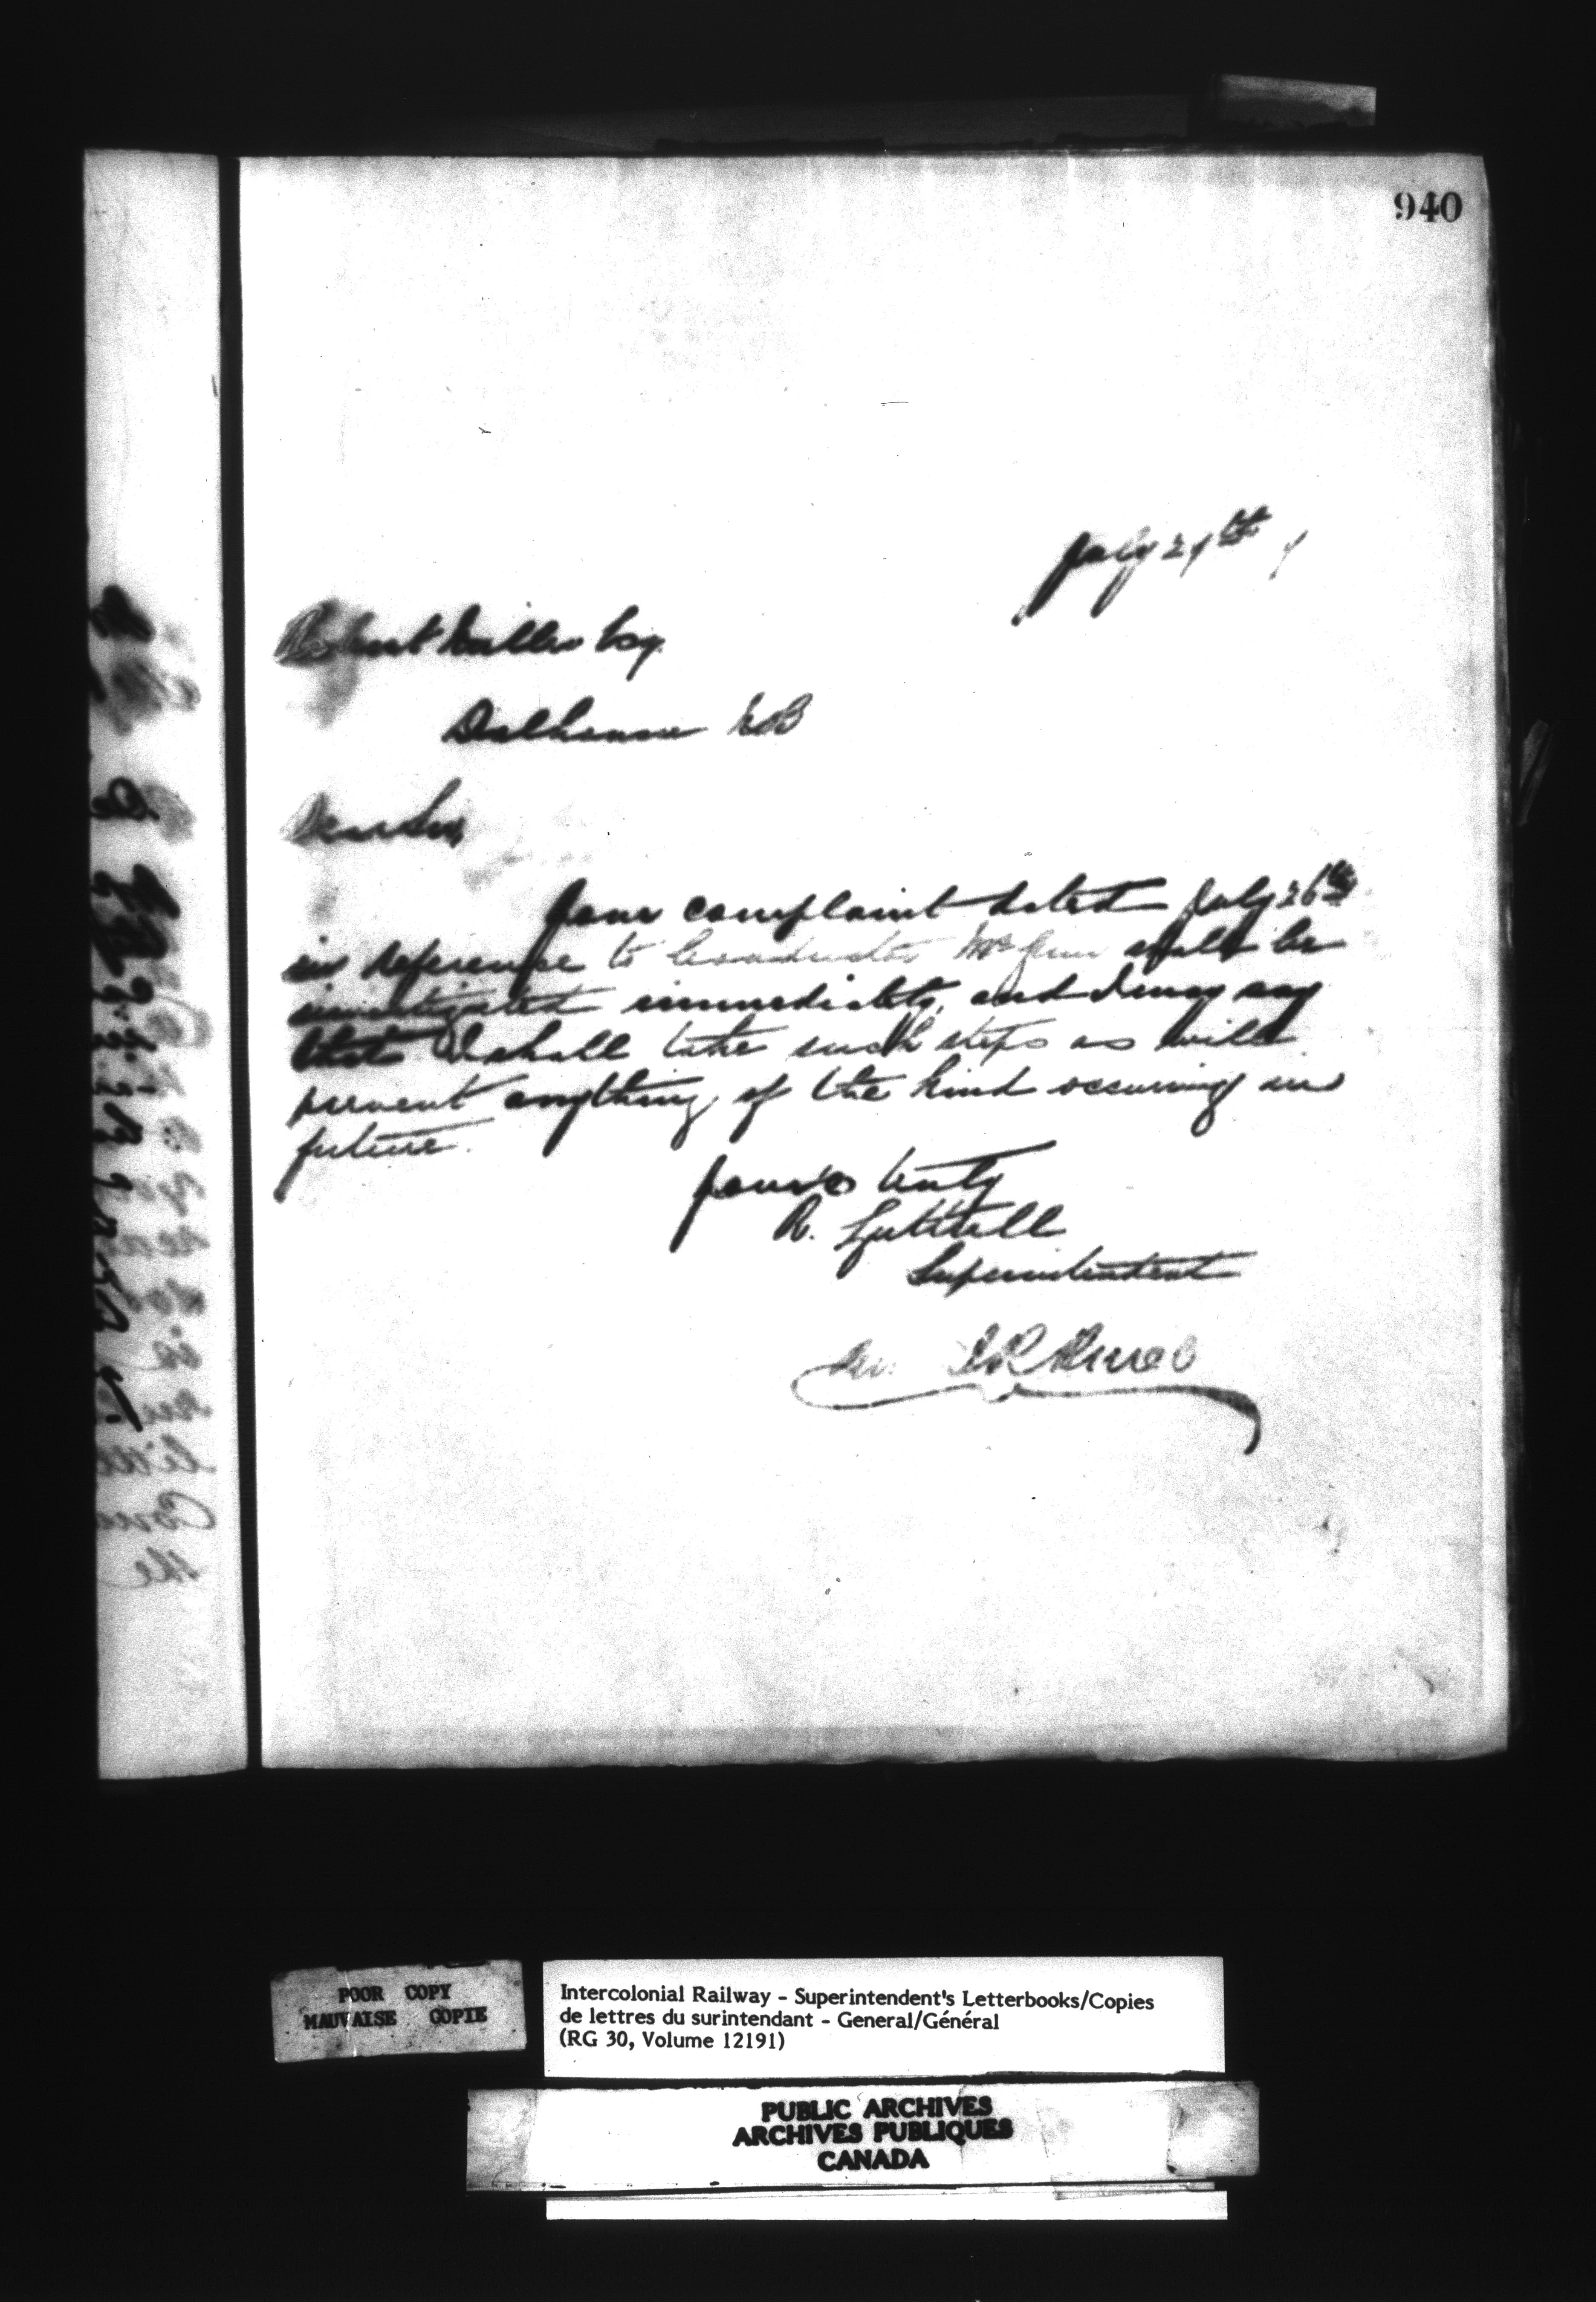 940
July 29th
Robert Miller Esq
Dalhousie NB
Dear Sir,
Your complaint dated July 26th
in reference to Conductor shall be
investigated immediately, and I may say
that I shall take such steps as will
prevent anything of the kind occurring in
future.
Yours truly
R. Luttrell
Superintendent
POOR COPY
MAUVAISE COPIE
Intercolonial Railway - Superintendent's Letterbooks/Copies
de lettres du surintendant - General/Général
(RG 30, Volume 12191)
PUBLIC ARCHIVES
ARCHIVES PUBLIQUES
CANADA